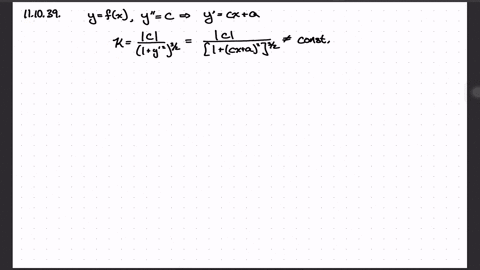 11.10.39. y=f(x), y''=c ⇒ y'=cx+a
K = |c| / (1+y'²)^3/2 = |c| / [1+(cx+a)²]^3/2 ≠ const.